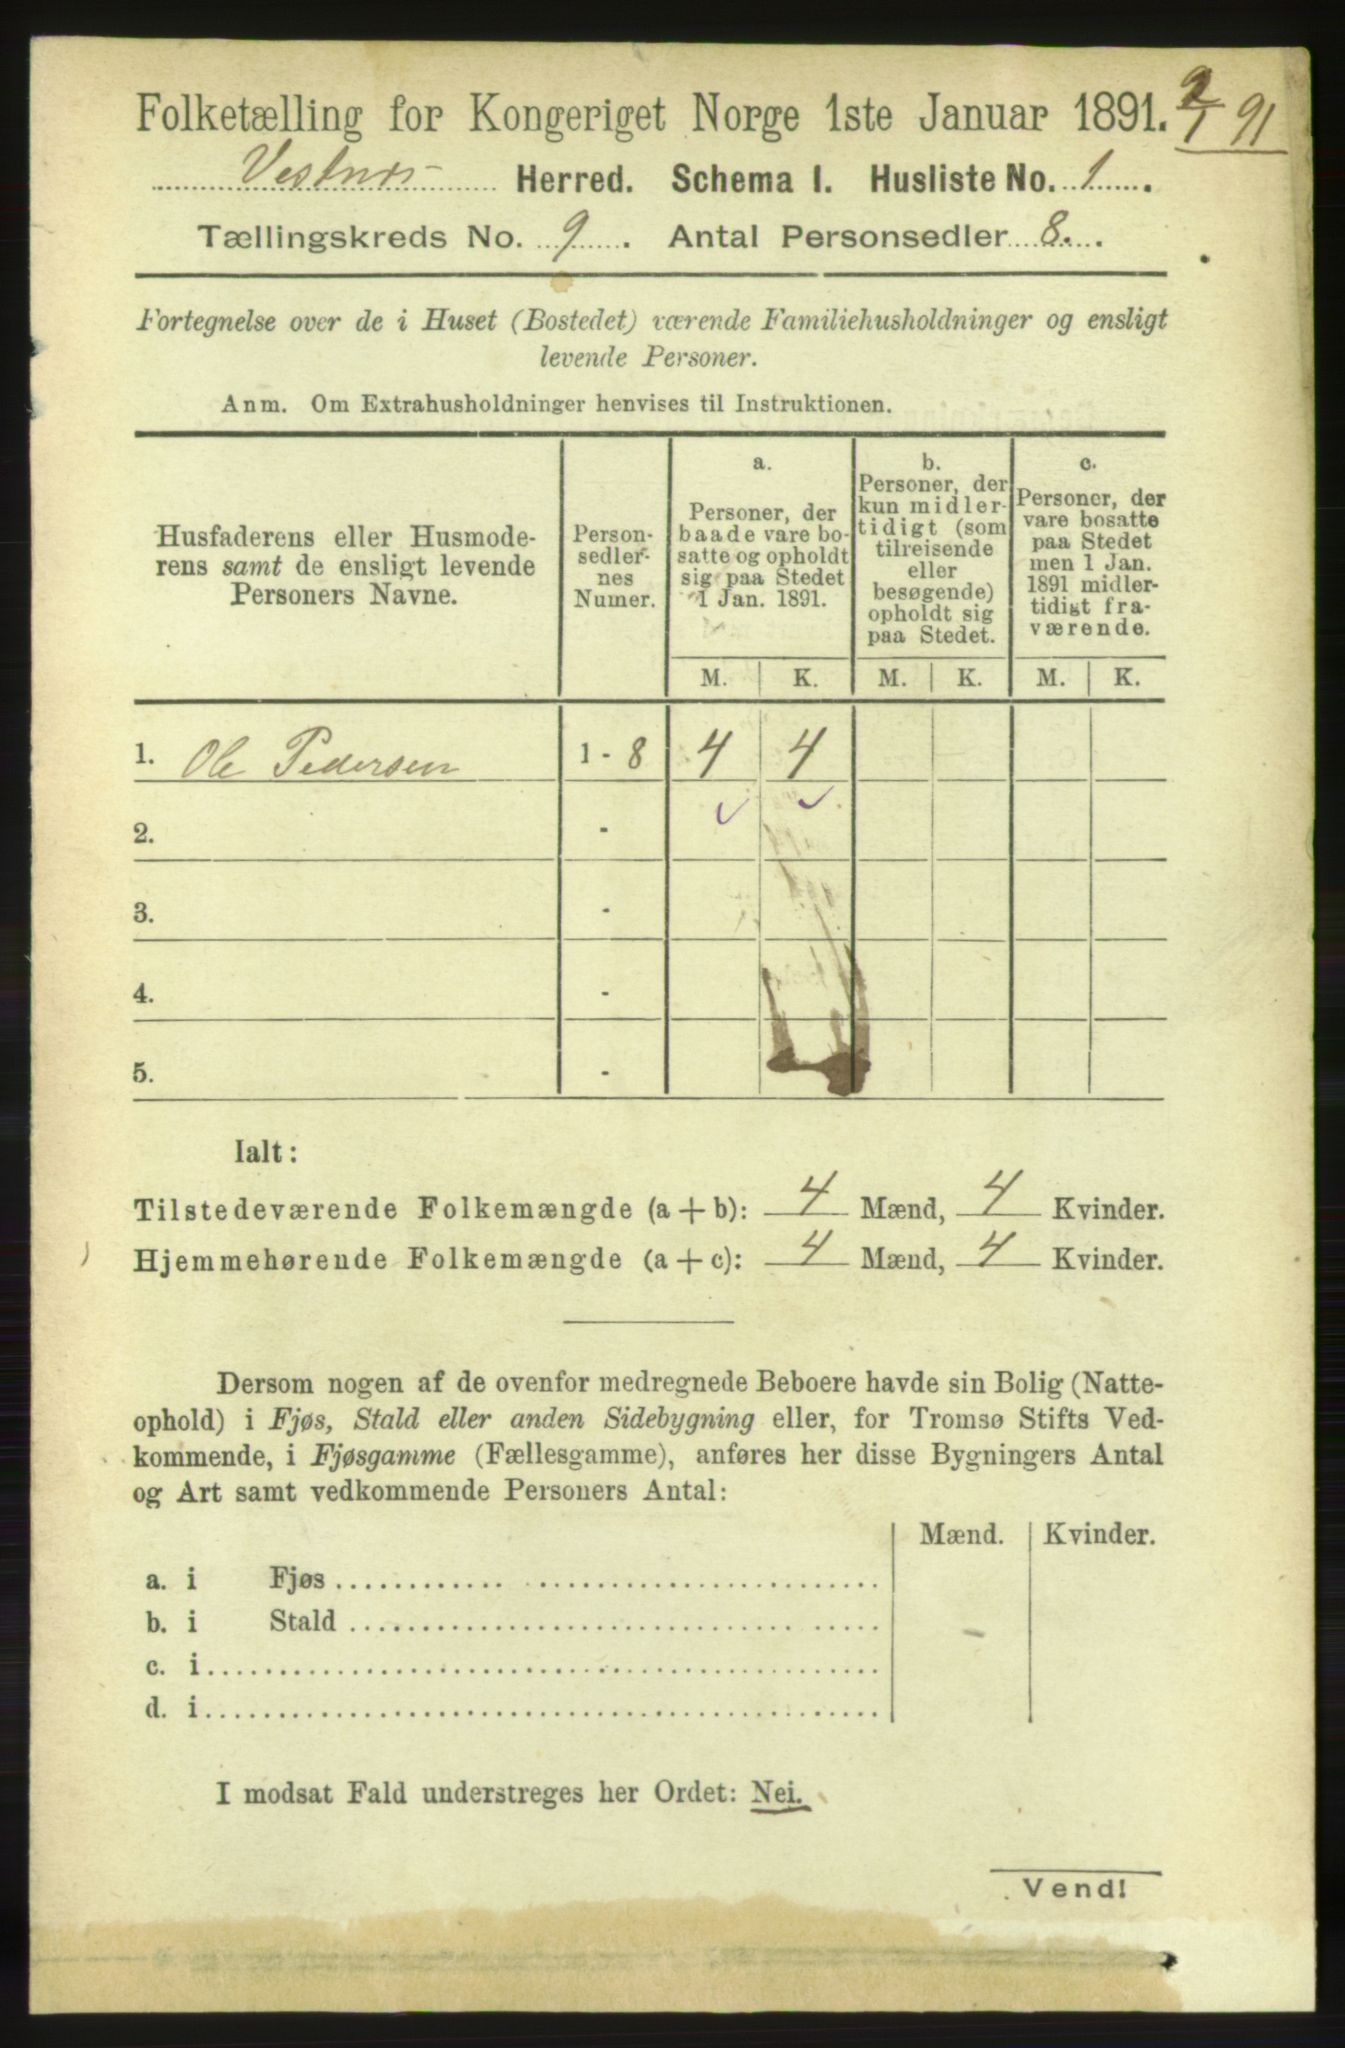 Folketælling for Kongeriget Norge 1ste Januar 1891. 2/1 91
Vestnes Herred. Schema I. Husliste No. 1.
Tællingskreds No. 9. Antal Personsedler 8.
Fortegnelse over de i Huset (Bostedet) værende Familiehusholdninger og ensligt
levende Personer.
Anm. Om Extrahusholdninger henvises til Instruktionen.
Husfaderens eller Husmode-
rens samt de ensligt levende
Personers Navne.
Person-
sedler-
nes
Numer.
a.
Personer, der
baade vare bo-
satte og opholdt
sig paa Stedet
1 Jan. 1891.
b.
Personer, der
kun midler-
tidigt (som
tilreisende
eller
besøgende)
opholdt sig
paa Stedet.
c.
Personer, der
vare bosatte
paa Stedet
men 1 Jan.
1891 midler-
tidigt fra-
værende.
M. K. M. K. M. K.
1. Ole Pedersen 1 - 8 4 4
2. -
3. -
4. -
5. -
Ialt:
Tilstedeværende Folkemængde (a + b): 4 Mænd, 4 Kvinder.
Hjemmehørende Folkemængde (a + c): 4 Mænd, 4 Kvinder.
Dersom nogen af de ovenfor medregnede Beboere havde sin Bolig (Natte-
ophold) i Fjøs, Stald eller anden Sidebygning eller, for Tromsø Stifts Ved-
kommende, i Fjøsgamme (Fællesgamme), anføres her disse Bygningers Antal
og Art samt vedkommende Personers Antal:
Mænd. Kvinder.
a. i Fjøs
b. i Stald
c. i
d. i
I modsat Fald understreges her Ordet: Nei.
Vend!